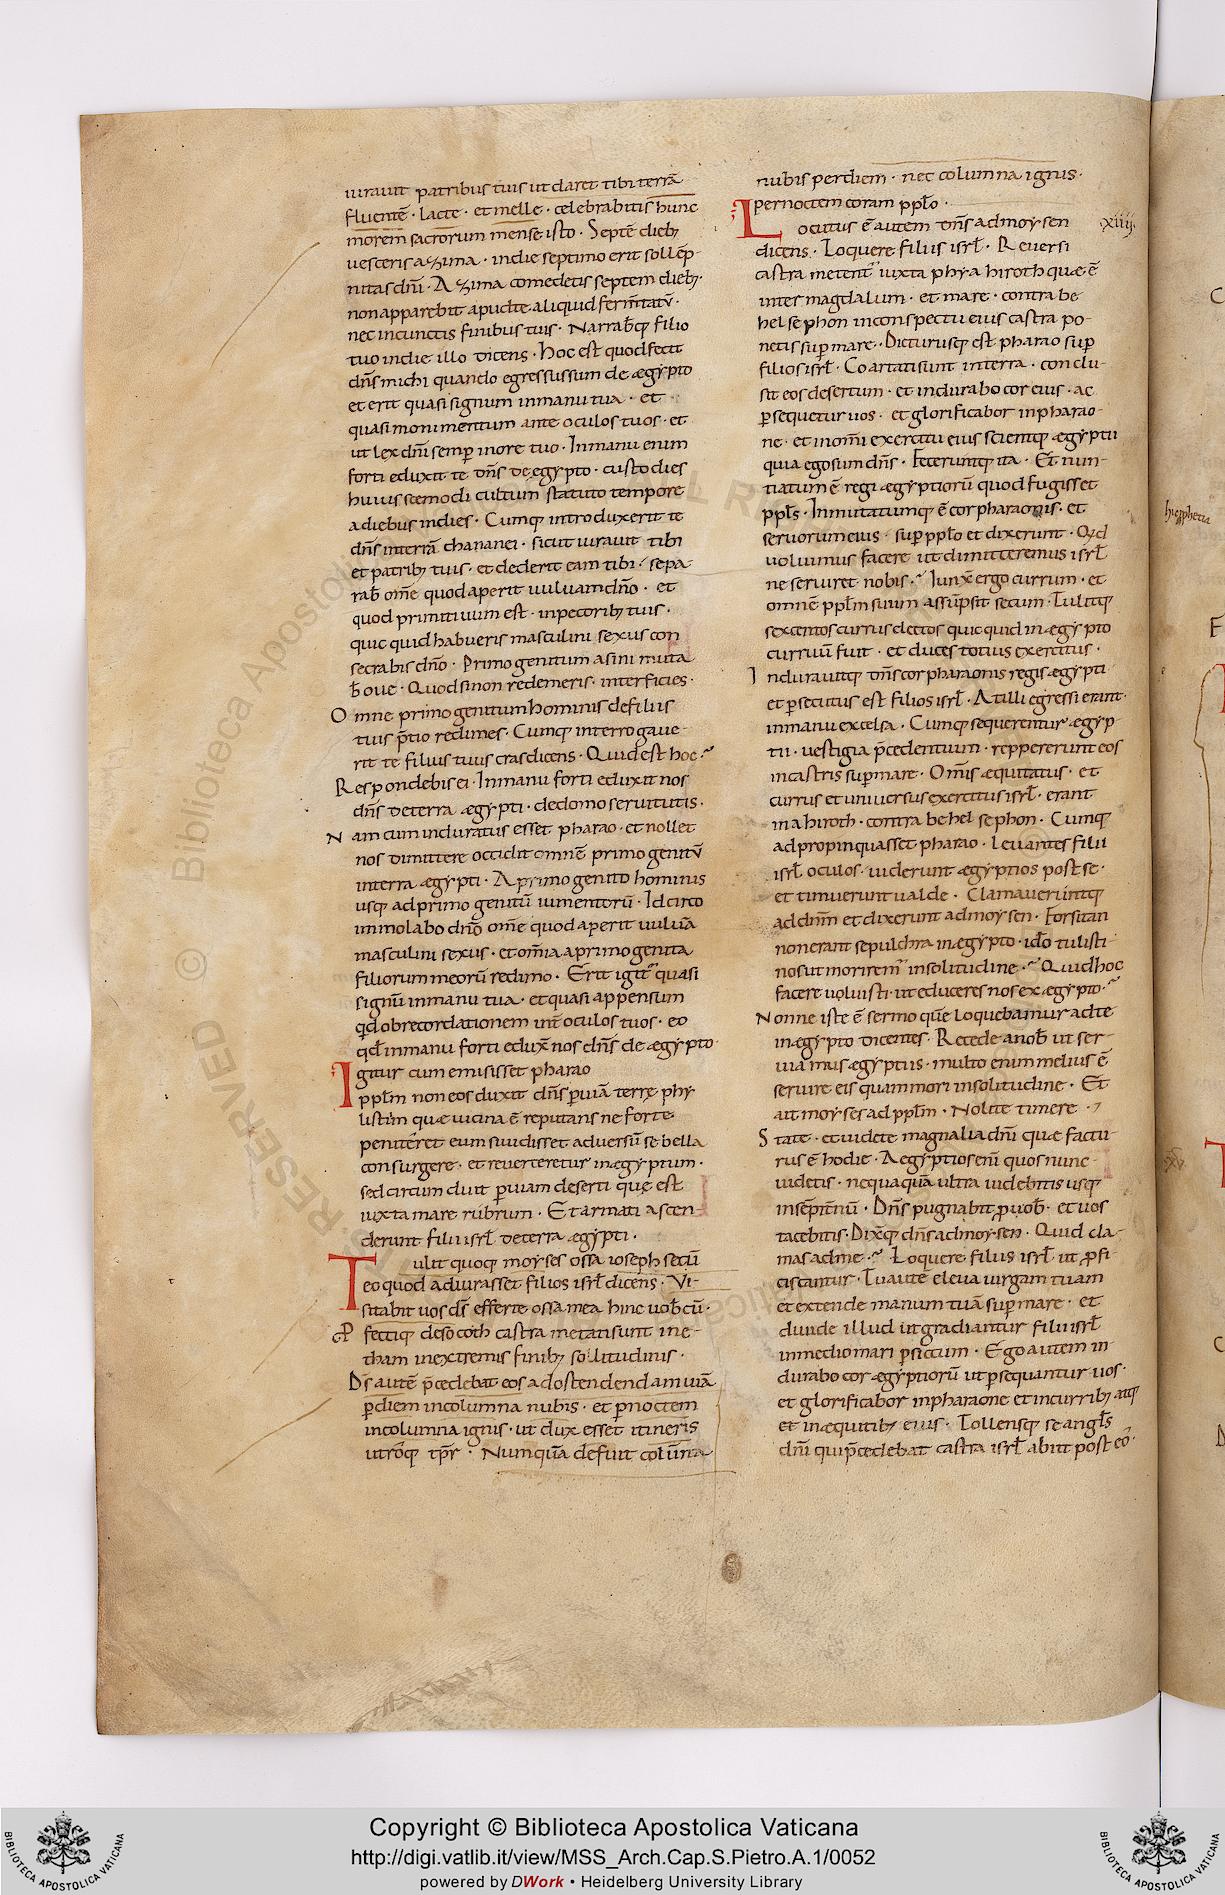 iuravit patribus tuis ut daret tibi terrã
fluentẽ · lacte · et melle · celebrabitis hunc
morem sacrorum mense isto · Septẽ dieb;
vesceris azima · indie septimo erit sollẽp-
nitas dñi · Azima comedetis septem dieb;
non apparebit apud te aliquid ferm̃tatũ ·
nec incunctis finibus tuis · Narrab̃q; filio
tuo indie illo dicens · hoc est quod fecit
dñs michi quando egressus sum de ægypto
et erit quasi signum inmanu tua · et
quasi monimentum ante oculos tuos · et
ut lex dñi semp̃ inore tuo · Inmanu enim
forti eduxit te dñs de ęgypto · custodies
huiuscemodi cultum statuto tempore
adiebus indies · Cumq; introduxerit te
dñs interrã chananei · sicut iuravit tibi
et patrib; tuis · et dederit eam tibi · sepa
rab̃ om̃e quod aperit vulvam dño · et
quod primitivum est · inpecorib; tuis ·
quic quid habueris masculini sexus con
secrabis dño · Primogenitum asini muta
b̃ ove · Quod si non redemeris · interficies ·
Omne primogenitum hominis de filiis
tuis p̃tio redimes · Cumq; interrogave-
rit te filius tuus cras dicens · Quid est hoc ·
Respondebis ei · Inmanu forti eduxit nos
dñs de terra ægypti · de domo servitutis ·
Nam cum induratus esset pharao · et nollet
nos dimittere occidit omnẽ primogenitũ
interra ægypti · A primogenito hominis
usq; ad primogenitũ iumentorũ · Idcirco
immolabo dño om̃e quod aperit vulvã
masculini sexus · et om̃ia aprimogenita
filiorum meorũ redimo · Erit igit̃ quasi
signũ inmanu tua · et quasi appensum
q̃d ob recordationem int̃ oculos tuos · eo
q̃d inmanu forti edux̃ nos dñs de ægypto ·
Igitur cum emisisset pharao
pplm̃ non eos duxit dñs p viã terrę phy
listim quæ vicina ẽ reputans ne forte
peniteret eum si vidisset adversũ se bella
consurgere · et reverteretur inægyptum ·
sed circum duxit p viam deserti quę est
iuxta mare rubrum · Et armati ascen
derunt filii isrl̃ de terra ægypti ·
Tulit quoq; moyses ossa ioseph secũ
eo quod adiurasset filios isrl̃ dicens · Vi-
sitabit vos dſ efferte ossa mea hinc vob̃cũ ·
Pfectiq; de socoth castra metati sunt ine-
tham inextremis finib; solitudinis ·
Dſ autẽ p̃cedebat eos ad ostendendam viã
p diem incolumna nubis · et p noctem
incolumna ignis · ut dux esset itineris
utrõq; tp̃r · Numquã defuit colũna
nubis per diem · nec columna ignis ·
per noctem coram pplo ·
Locutus ẽ autem dñs ad moysen
xiiii
dicens · Loquere filiis isrl̃ · Reversi
castra metent̃ iuxta phyahiroth quæ ẽ
inter magdalum · et mare · contra be
helsephon inconspectu eius castra po-
netis sup̃ mare · Dicturusq; est pharao sup̃
filios isrl̃ · Coartati sunt interra · conclu-
sit eos desertum · et indurabo cor eius · ac
p sequetur vos · et glorificabor inpharao-
ne · et inom̃i exercitu eius scientq; ægyptii
quia ego sum dñs · Feceruntq; ita · Et nun-
tiatum ẽ regi ægyptiorũ quod fugisset
ppls̃ · Inmutatumq; ẽ cor pharaonis · et
servorum eius · sup̃ pplo et dixerunt · Q;d
voluimus facere ut dimitteremus isrl̃
ne serviret nobis · Iunx̃ ergo currum · et
omnẽ pplm̃ suum assũpsit secum · Tulitq;
sexcentos currus electos quic quid in ægypto
curruũ fuit · et duces totius exercitus ·
Induravitq; dñs cor pharaonis regis ægypti
et p secutus est filios isrl̃ · At illi egressi erant ·
inmanu excelsa · Cumq; sequerentur ægyp-
tii · vestigia p̃cedentium · reppererunt eos
incastris sup̃ mare · Om̃is æquitatus · et
currus et universus exercitus isrl̃ · erant
in ahiroth · contra behelsephon · Cumq;
adpropinquasset pharao · Levantes filii
isrl̃ oculos · viderunt ægyptios post se ·
et timuerunt valde · Clamaveruntq;
ad dñm et dixerunt ad moysen · Forsitan
non erant sepulchra inægypto · ideo tulisti
nos ut morirem̃ insolitudine · Quid hoc
facere voluisti · ut educeres nos ex ægypto ·
Nonne iste ẽ sermo quẽ loquebamur ad te
inægypto dicentes · Recede anob̃ ut ser-
viamus ægyptiis · multo enim melius ẽ
servire eis quam mori insolitudine · Et
ait moyses ad pplm̃ · Nolite timere ·
State · et videte magnalia dñi quæ factu
rus ẽ hodie · Aegyptios eñi quos nunc
videtis · nequaquã ultra videbitis usq;
insẽpitñũ · Dñs pugnabit p vob̃ · et vos
tacebitis · Dix̃q; dñs ad moysen · Quid cla-
mas ad me · Loquere filiis isrl̃ ut pfi
ciscantur · Tu autẽ eleva virgam tuam
et extende manum tuã sup̃ mare · et
divide illud ut gradiantur filii isrl̃
inmedio mari p siccum · Ego autem in
durabo cor ægyptiorũ ut p sequantur vos ·
et glorificabor inpharaone et incurrib; atq;
et inæquitib; eius · Tollensq; se angls̃
dñi qui p̃cedebat castra isrl̃ abiit post eõ ·
Copyright © Biblioteca Apostolica Vaticana
http://digi.vatlib.it/view/MSS_Arch.Cap.S.Pietro.A.1/0052
powered by DWork • Heidelberg University Library